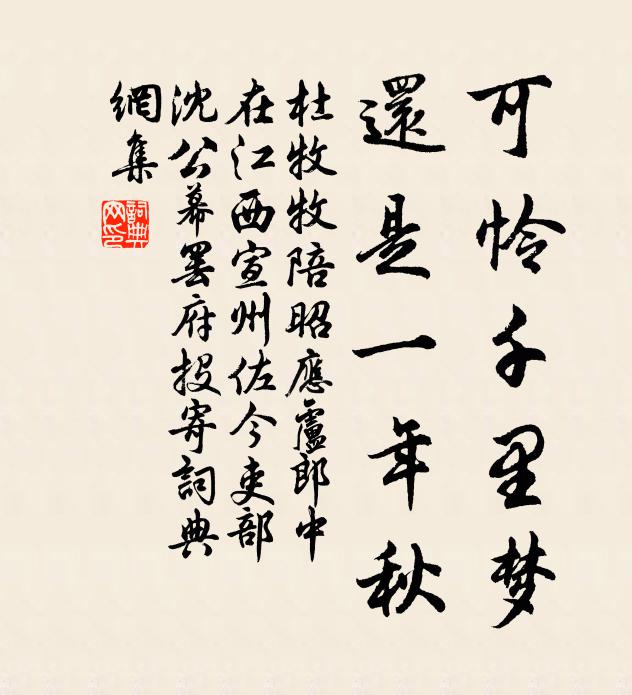 可怜千里梦
還是一年秋
杜牧牧陪昭應盧郎中
在江西宣州佐今吏部
沈公幕罷府投寄詞典
網集
詞典
网印